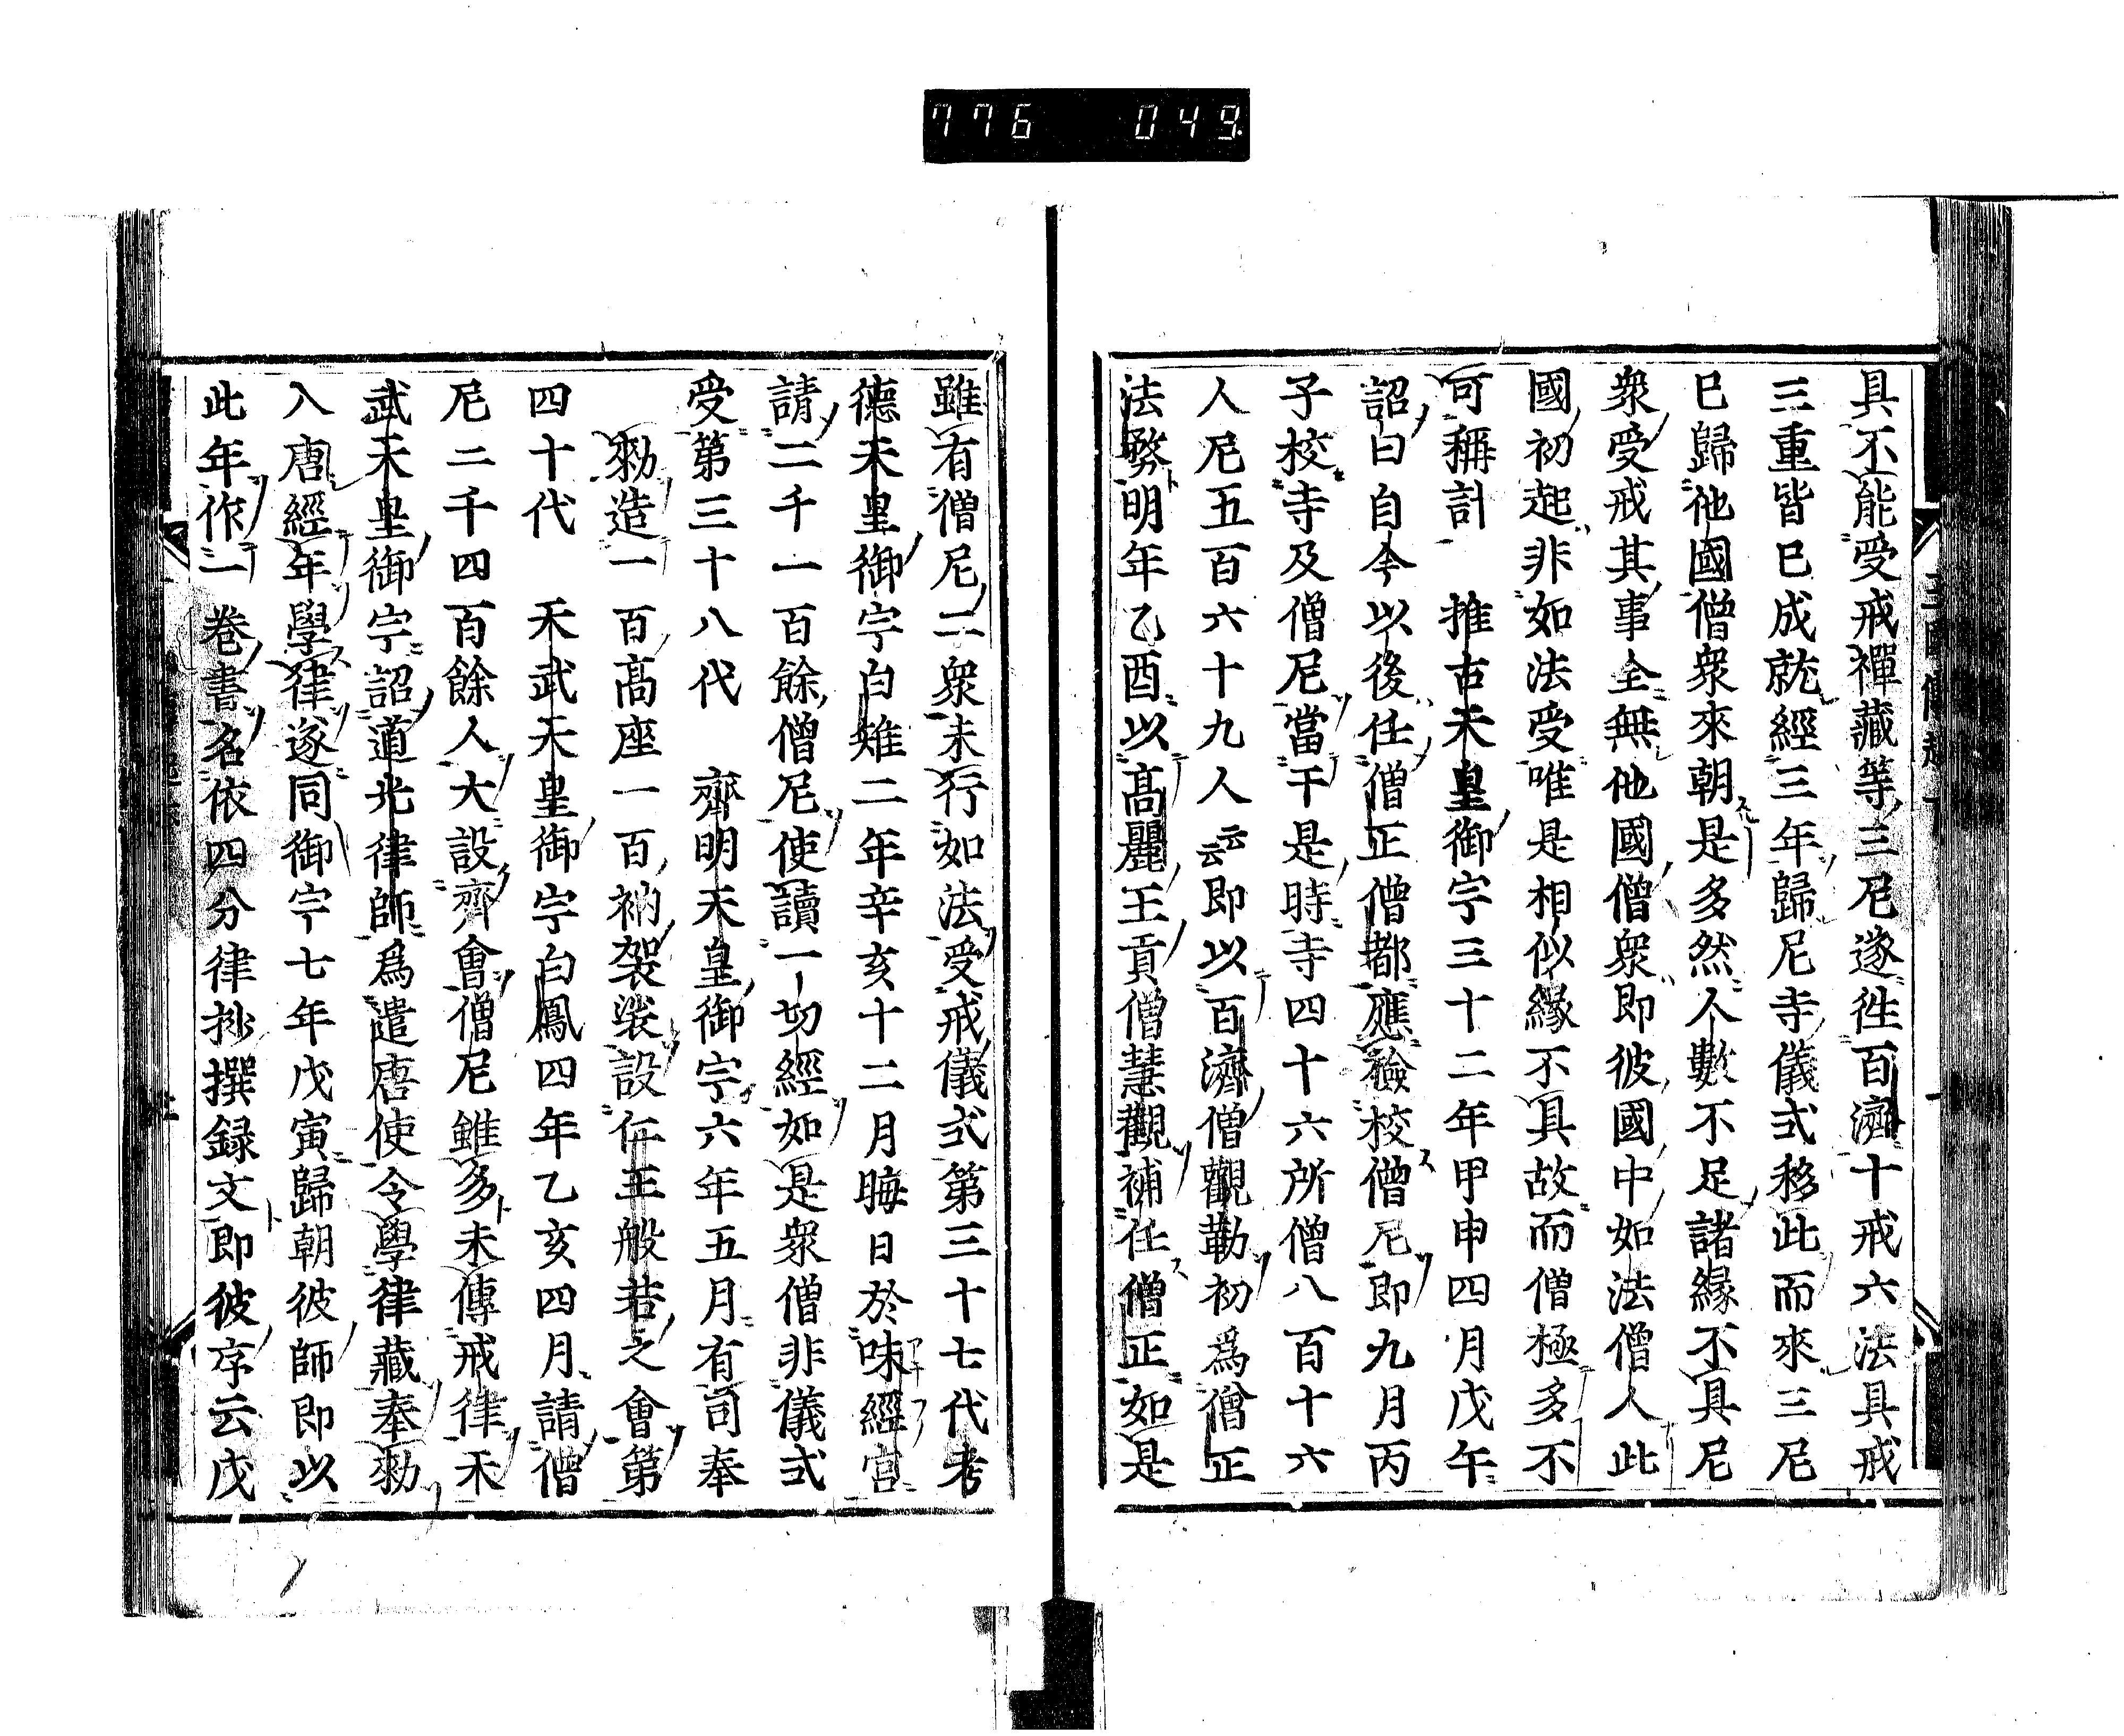 776 049
具不能受戒禪藏等三尼遂徃百濟十戒六法具戒
三重皆已成就經三年歸尼寺儀式移此而來三尼
已歸他國僧衆來朝是多然人數不足諸緣不具尼
衆受戒其事全無他國僧衆即彼國中如法僧人此
國初起非如法受唯是相似緣不具故而僧極多不
可稱計　推古天皇御宇三十二年甲申四月戊午
詔曰自今以後任僧正僧都應檢校僧尼即九月丙
子校寺及僧尼當于是時寺四十六所僧八百十六
人尼五百六十九人云云即以百濟僧觀勒初爲僧正
法務明年乙酉以高麗王貢僧慧觀補任僧正如是
雖有僧尼二衆未行如法受戒儀式第三十七代考
德天皇御宇白雉二年辛亥十二月晦日於味經宮
請二千一百餘僧尼使讀一切經如是衆僧非儀式
受第三十八代　齊明天皇御宇六年五月有司奉
勅造一百高座一百衲袈裟設仁王般若之會第
四十代　天武天皇御宇白鳳四年乙亥四月請僧
尼二千四百餘人大設齊會僧尼雖多未傳戒律天
武天皇御宇詔道光律師爲遣唐使令學律藏奉勅
入唐經年學律遂同御宇七年戊寅歸朝彼師即以
此年作一卷書名依四分律抄撰録文即彼序云戊